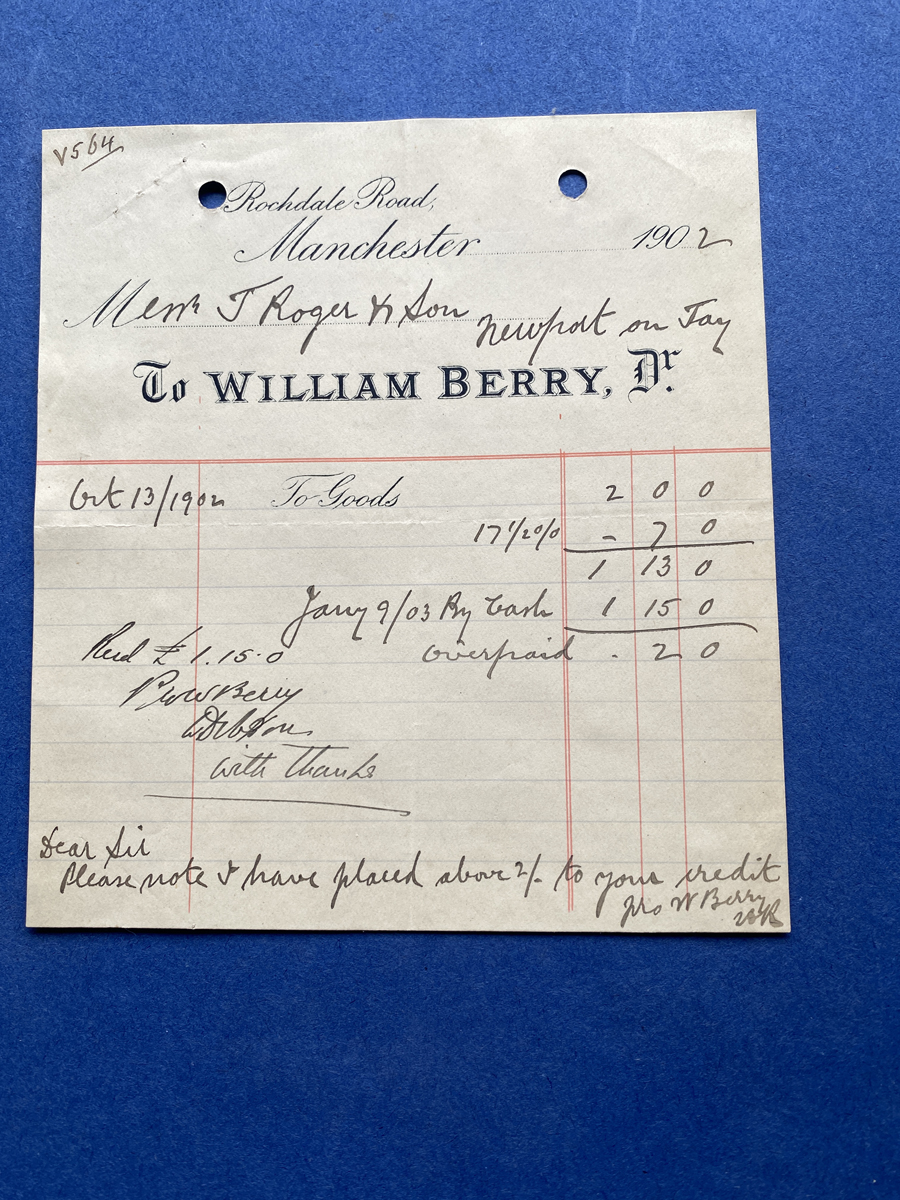 V564
Rochdale Road,
Manchester 1902
Messrs J Roger & Son
Newport on Tay
To WILLIAM BERRY, Dr.
Oct 13/1902 To Goods 2 0 0
17 1/2 % - 7 0
1 13 0
Jany 9/03 By Cash 1 15 0
Recd £1.15.0 overpaid - 2 0
Pro W Berry
with Thanks
Dear Sir
Please note I have placed above 2/- to your credit
pro W Berry